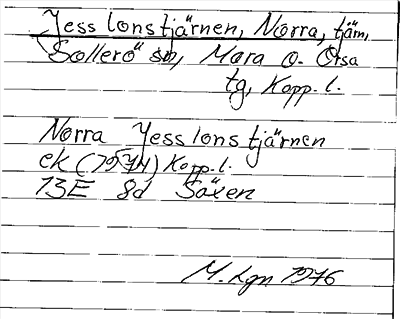 Jesslonstjärnen, Norra, tjärn,
Sollerö sn, Mora o. Orsa
tg, Kopp. l.
Norra Jesslonstjärnen
ek (1974) Kopp. l.
13E 8d Säxen
M. Lgn 1976